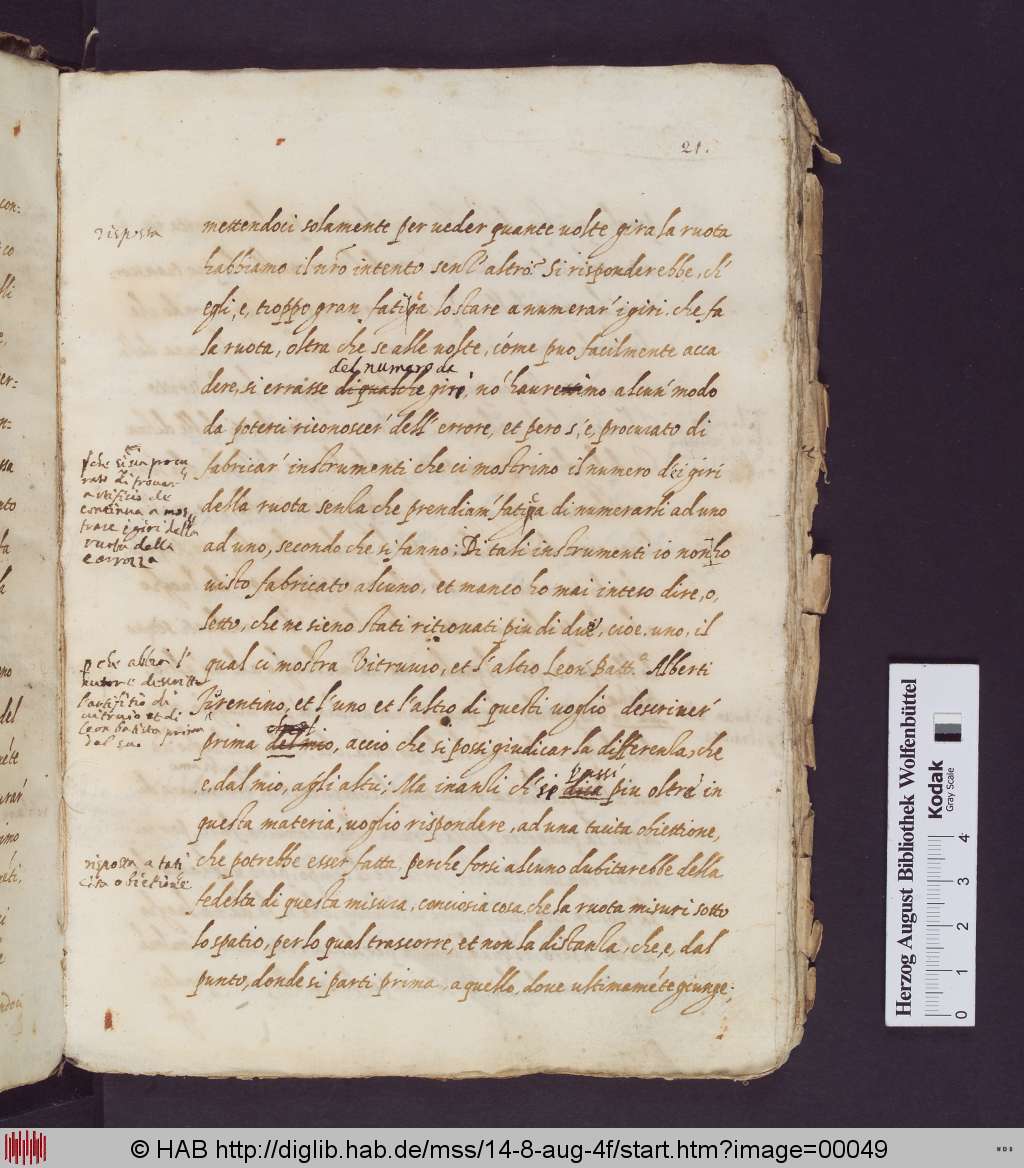 21.
risposta
mettendoci solamente per ueder quante uolte gira la ruota
habbiamo il nr̃o intento senz' altro? Si risponderebbe, ch'
egli, e, troppo gran fatica lo stare a numerar' i giri che fa
la ruota, oltra che se alle uolte, cóme puo facilmente acca
del numero de
dere, si errasse di qualche giri, nó haueremmo alcun' modo
da poterci riconoscer' dell' errore, et pero s', e, procurato di
fabricar' instrumenti che ci mostrino il numero dei giri
della ruota senza che prendiam' fatica di numerarli ad uno
ad uno, secondo che si fanno: Di tali instrumenti io non ho
uisto fabricato alcuno, et manco ho mai inteso dire, o,
letto, che ne sieno stati ritrouati piu di due, cioe, uno, il
qual ci mostra Vitruuio, et l' altro Leon Batt.a Alberti
Fiorentino, et l' uno et l' altro di questi uoglio descriuer'
prima del mio, accio che si possi giudicar la differenza, che
e, dal mio, agli altri; Ma inanzi ch' io dica piu oltre in
passi
questa materia, uoglio rispondere, ad una tacita obiettione,
che potrebbe esser fatta perche forsi alcuno dubitarebbe della
fedelta di questa misura, conciosia cosa, che la ruota misuri sotto
lo spatio, per lo qual trascorre, et non la distanza, che, e, dal
punto, donde si parti prima, a quello, doue ultimaméte giunge;
che si sia procu
rato di trouar
artificio che
continua a mos
trare i giri della
ruota della
carrozza
che abbia l'
autore descritto
l'artifitio di
uitruuio et di
leon batista prima
del suo
risposta a tati
cita obiettione
Herzog August Bibliothek Wolfenbüttel
Kodak
Gray Scale
0 1 2 3 4
© HAB http://diglib.hab.de/mss/14-8-aug-4f/start.htm?image=00049